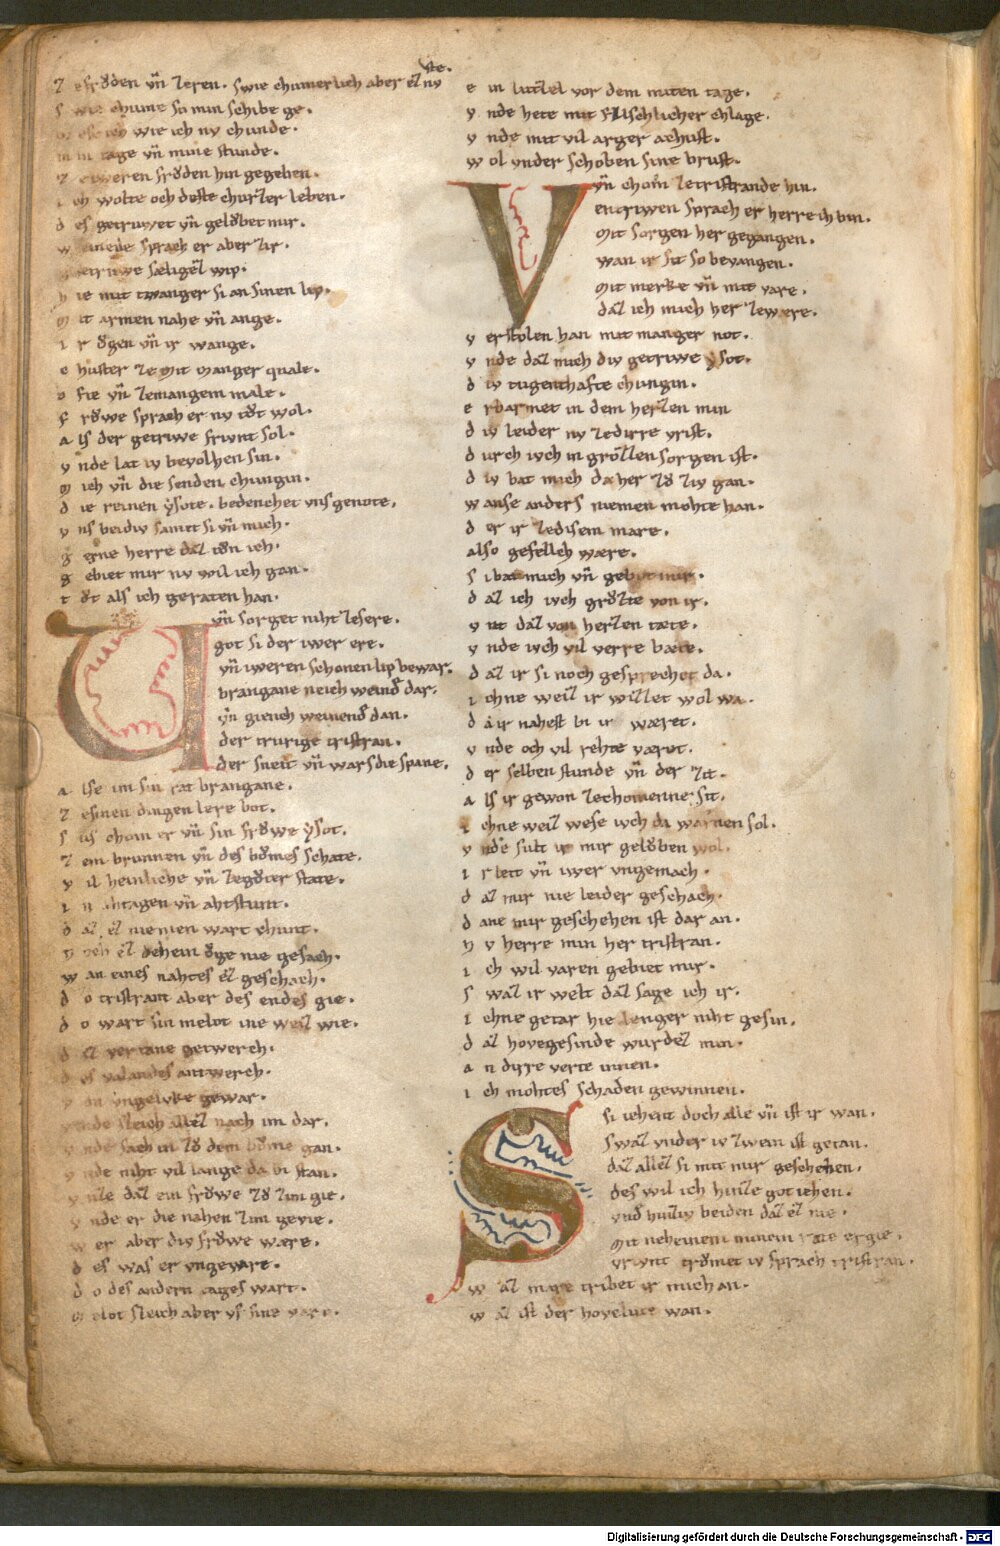 z efrꝍden vn̄ zeren. swie chumerlich aber eȥ nv
ste.
s wie chume so min schibe ge.
wie ich nv chunde.
m in tage vn̄ mine stunde.
z eiweren frꝍden hin gegeben.
i ch wolte och deste churzer leben.
d es getruwet vn̄ gelꝍbet mir.
w eineṅde sprach er aber zir.
getriwe sæligeȥ wip.
h ie mit twanger si an sinen lip.
m it armen nahe vn̄ ange.
i r ꝍgen vn̄ ir wange.
c huster ze mit manger quale.
o fte vn̄ zemangem male.
f rꝍwe sprach er nv tꝍt wol.
a ls der getriwe friunt sol.
v nde lat iv bevolhen sin.
m ich vn̄ die senden chungin.
d ie reinen ẏsote. bedenchet vns genote.
v ns beidiv samit si vn̄ mich.
g erne herre daȥ tꝍn ich.
g ebiet mir nv wil ich gan.
t ꝍt als ich geraten han.
Vn̄ sorget niht zesere.
got si der iwer ere.
vn̄ iweren schonen lip bewar.
brangane neich weind̄ dar.
vn̄ giench weinend̄ dan.
der trurige tristran.
der sneit vn̄ warf die spane.
a lse im sin rat brangane.
z esinen dingen lere bot.
s us chom er vn̄ sin frꝍwe ẏsot.
z em brunnen vn̄ des bꝍmes schate.
v il heinliche vn̄ zegꝍter state.
i n ahtagen vn̄ ahtstunt.
d aȥ eȥ niemen wart chunt.
n och eȥ dehein ꝍge nie gesach.
w an eines nahtes eȥ geschach.
d o tristrant aber des endes gie.
d o wart sin melot ine weiȥ wie.
d aȥ vertane getwerch.
d es valandes antwerch.
v on vngelvke gewar.
v nde sleich alleȥ nach im dar.
v nde sach in zꝍ dem bꝍme gan.
v nde niht vil lange da bi stan.
v nze daȥ ein frꝍwe zꝍ zim gie.
v nde er die nahen zim gevie.
w er aber div frꝍwe wære.
d es was er vngeware.
d o des andern tages wart.
m elot sleich aber vf sine vart.
e in luttzel vor dem miten tage.
v nde hete mit fælschlicher chlage.
v nde mit vil arger achust.
w ol vnder schoben sine brust.
Vn̄ chom zetristrande hin.
entriwen sprach er herre ih bin.
mit sorgen her gegangen.
wan ir sit so bevangen.
mit merke vn̄ mit vare.
daȥ ich mich her zewere.
v erstolen han mit manger not.
v nde daȥ mich div getriwe ẏsot.
d iv tugenthafte chungin.
e rbarmet in dem herzen min
d iv leider nv zedirre vrist.
d urch iuch in grꝍzzen sorgen ist.
d iv bat mich da her zꝍ ziv gan.
w anse anders niemen mohte han.
d er ir zedisem mare.
also gesellich wære.
s i bat mich vn̄ gebot mir.
d aȥ ich iuch grꝍzte von ir.
v nt daȥ von herzen tæte.
v nde iuch vil verre bæte.
d aȥ ir si noch gesprechet da.
i chne weiȥ ir wizzet wol wa.
d a ir nahest bi ir wæret.
v nde och vil rehte været.
d er selben stunde vn̄ der zit.
a ls ir gewon zechomenne sit.
i chne weiȥ wese iuch da warnen sol.
v nde sult ir mir gelꝍben wol.
i r leit vn̄ iwer vngemach.
d aȥ mir nie leider geschach.
d ane mir geschehen ist dar an.
n v herre min her tristran.
i ch wil varen gebiet mir.
s waȥ ir welt daȥ sage ich ir.
i chne getar hie lenger niht gesin.
d aȥ hovegesinde wurdeȥ min.
a n dirre verte innen.
i ch mohtes schaden gewinnen.
Si iehent doch alle vn̄ ist ir wan.
swaȥ vnder iv zwein ist getan.
daȥ alleȥ si mit mir geschehen.
des wil ich hiute got iehen.
vnd̄ hiuziv beiden daȥ eȥ nie.
mit neheinem minem rate ergie.
vriunt trꝍmet iv sprach tristran.
w aȥ mare tribet ir mich an.
w aȥ ist der hovelute wan.
Digitalisierung gefördert durch die Deutsche Forschungsgemeinschaft - DFG